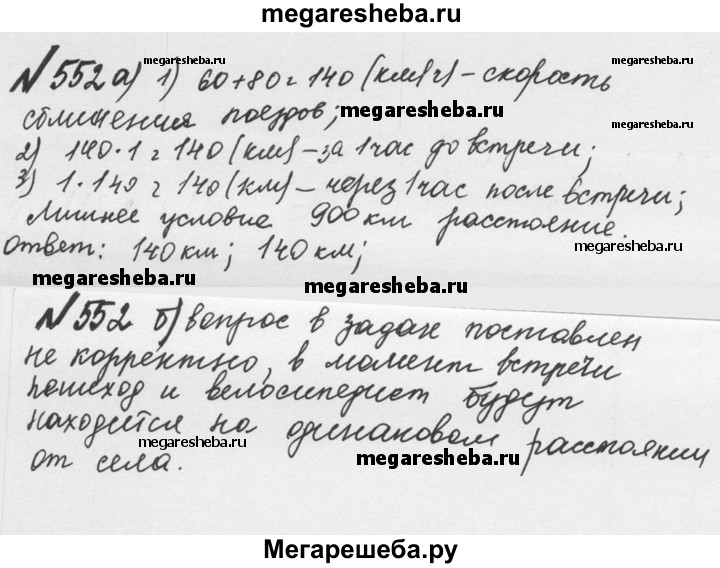 megaresheba.ru
№552 а) 1) 60+80=140 (км/ч) – скорость megaresheba.ru
сближения поездов; megaresheba.ru
2) 140·1=140 (км) – за 1 час до встречи;
3) 1·140=140 (км) – через 1 час после встречи;
Лишнее условие 900 км расстояние.
Ответ: 140 км; 140 км; megaresheba.ru
megaresheba.ru
№552 б) вопрос в задаче поставлен
не корректно, в момент встречи
пешеход и велосипедист будут
находится на одинаковом расстоянии
megaresheba.ru
от села. megaresheba.ru
Мегарешеба.ру